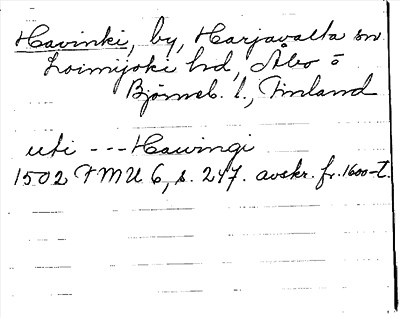 Havinki, by, Harjavalta sn
Loimijoki hd, Åbo o
Björneb. l., Finland
uti --- Hawingi
1502 FMU 6, s. 247. avskr. fr. 1600-t.